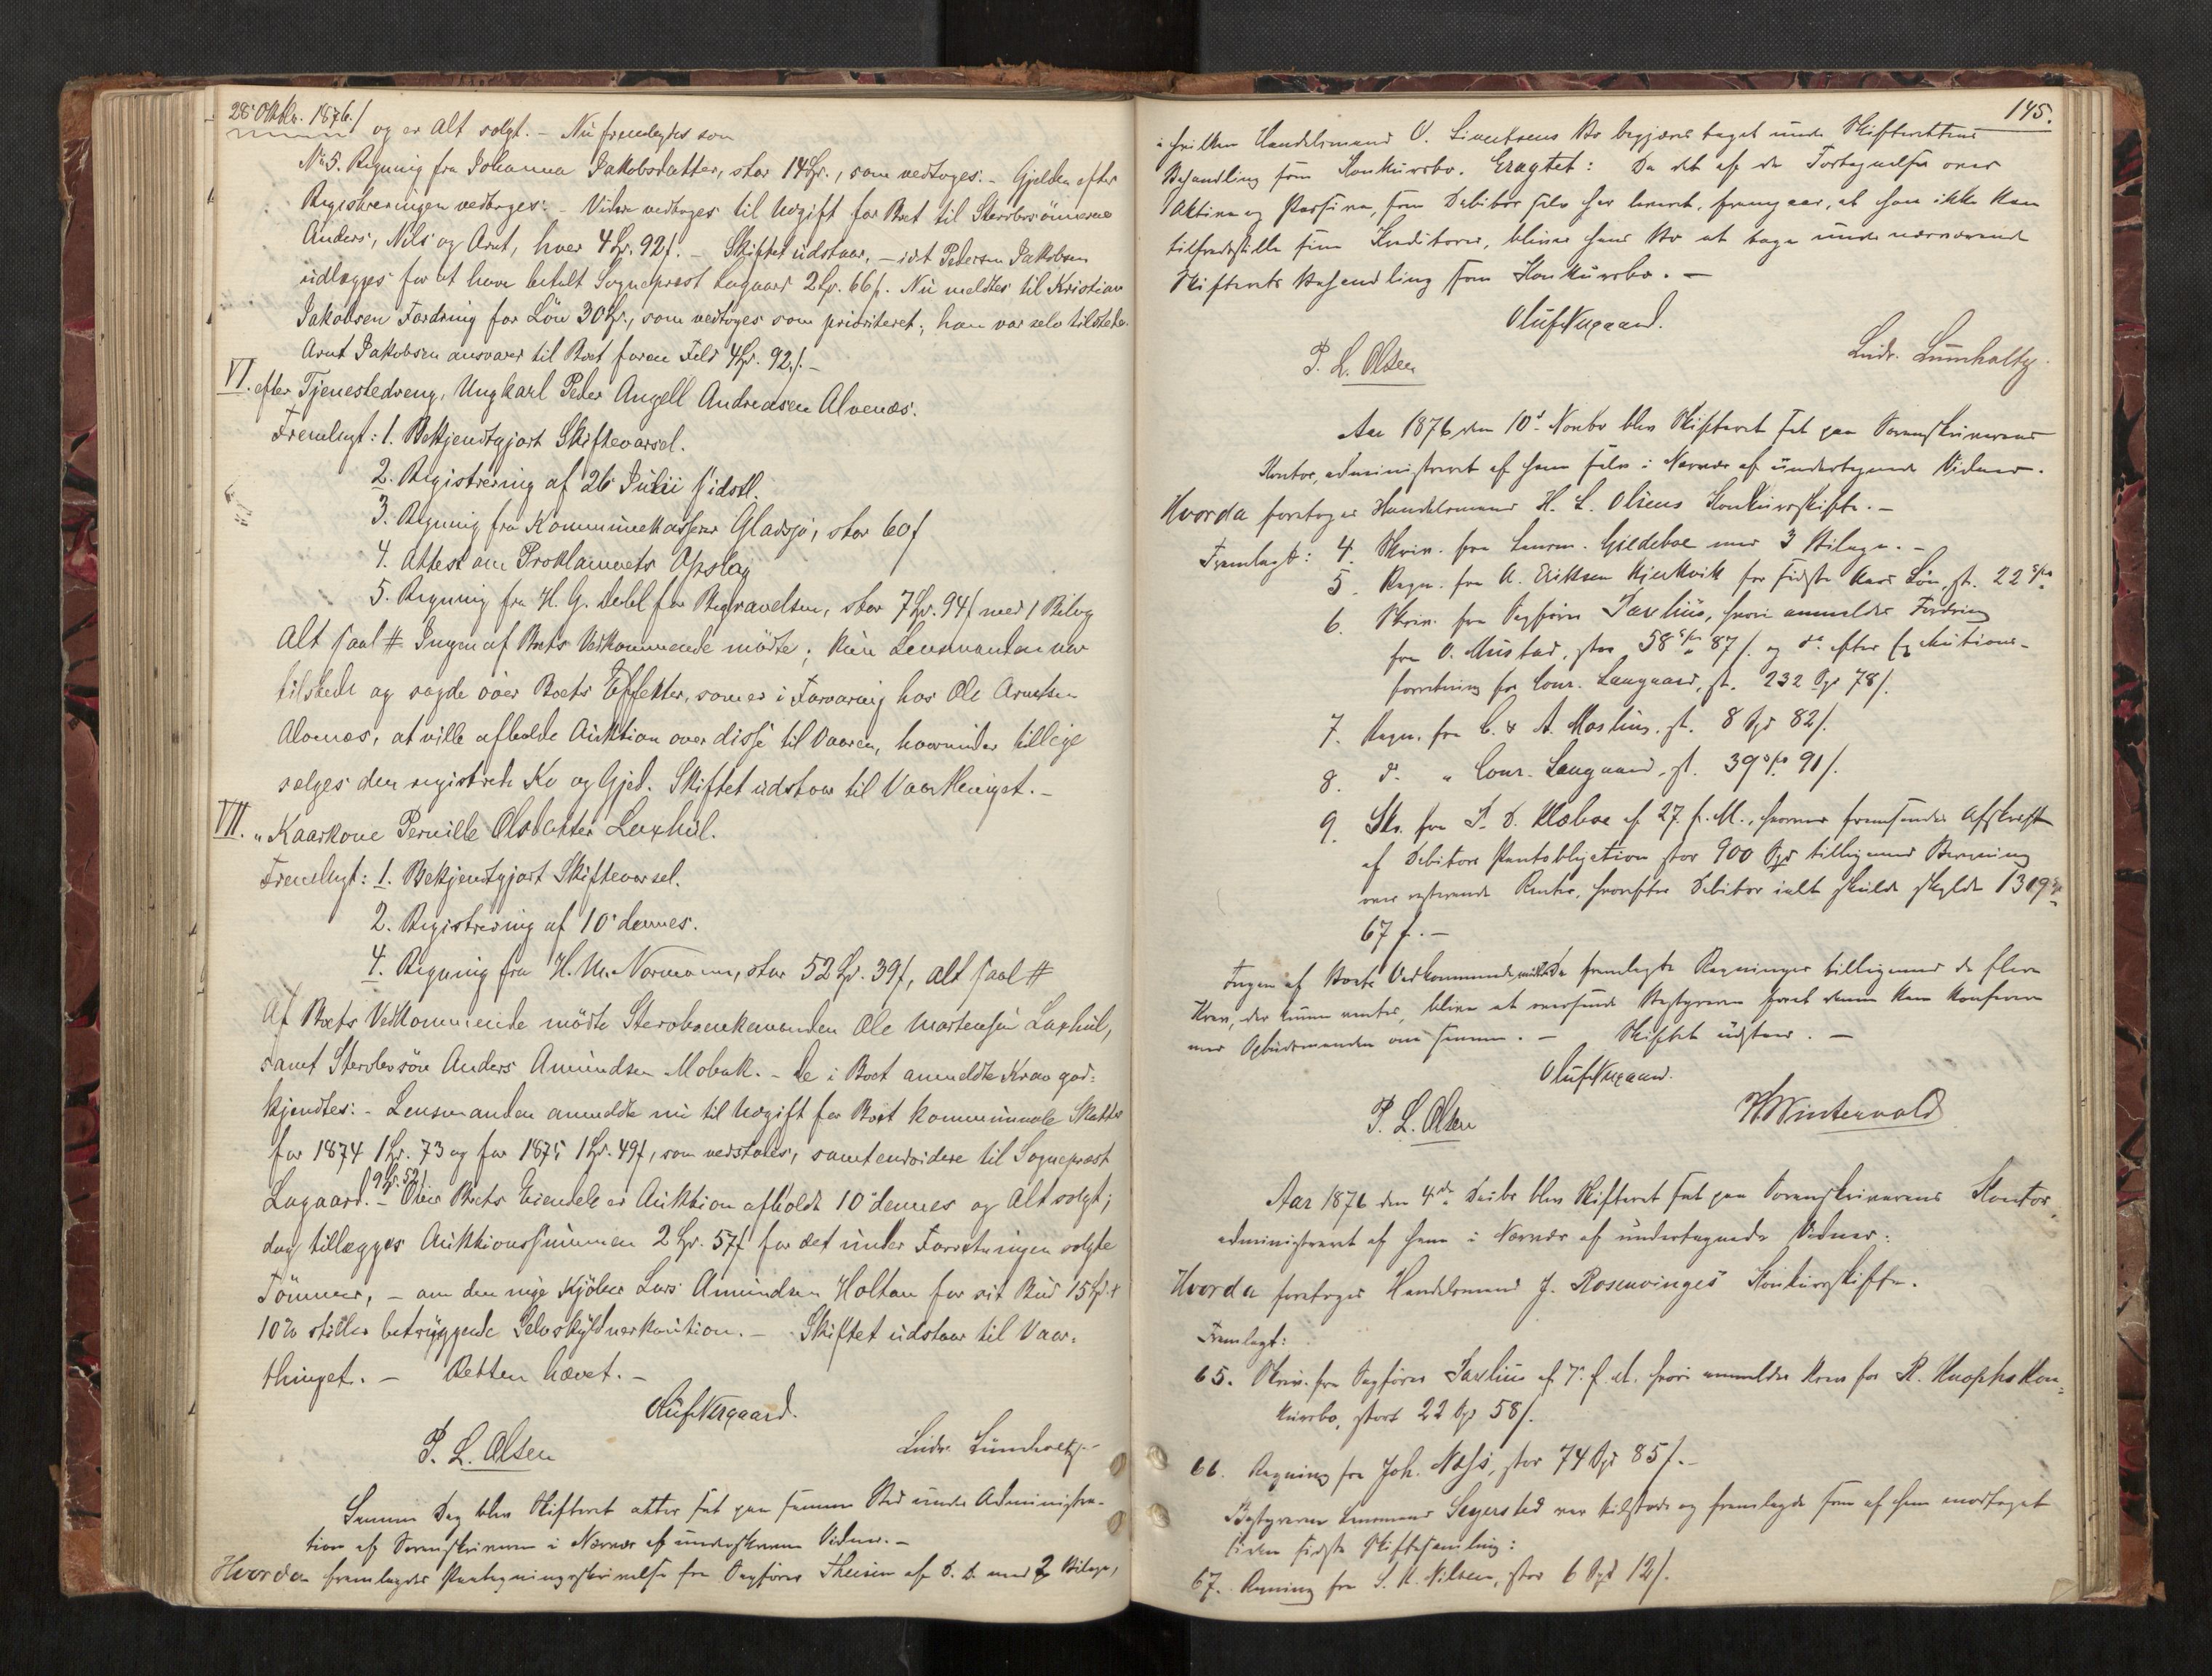 28' Oktbr. 1876./
og er Alt solgt. – Nu fremlagdes som
No 5. Regning fra Johanna Jakobsdatter, stor 14 Sp., som vedtoges. – Gjelden efter
Registreringen vedtoges. – Videre vedtoges til Udgift for Boet til Stervbosönnerne
Anders, Nils og Arnt, hver 4 Sp. 92 ſ. – Skiftet udstaar, – idet Pedersen Jakobsen
udlægges for at have betalt Sogneprest Lagaard 2 Sp. 66 ſ. Nu meldtes til Kristian
Jakobsen Fordring for Lön 30 Sp., som vedtoges som prioriteret; han var selv tilstede.
Arnt Jakobsen ansvarer til Boet for en Feld 4 Sp. 92 ſ. –
VI. efter Tjenestedreng, Ungkarl Peder Angell Andreasen Alvenes.
Fremlagt: 1. Bekjendtgjort Skiftevarsel.
2. Registrering af 26 Julii sidstl.
3. Regning fra Kommunekasserer Gladsjö, stor 60 ſ
4. Attest om Proklamaets Opslag
5. Regning fra H. G. Debl for Begravelsen, stor 7 Sp. 94 ſ med 1 Bilag
Alt saal # Ingen af Boets Vedkommende mödte; kun Lensmanden var
tilstede og sagde over Boets Effekter, som er i Forvaring hos Ole Arntsen
Alvenes, at ville afholde Auktion over disse til Vaaren, hvorunder tillige
selges den registrerte Ko og Gjed. Skiftet udstaar til Vaarthinget. –
VII. " Kaarkone Pernille Olsdatter Laxhul.
Fremlagt: 1. Bekjendtgjort Skiftevarsel.
2. Registrering af 10' dennes.
4. Regning fra H. M. Normann, stor 52 Sp. 39 ſ, Alt saal #
Af Boets Vedkommende mödte Stervboenkemanden Ole Mortensen Laxhul,
samt Stervbosön Anders Amundsen Mobak. – De i Boet anmeldte Krav god=
kjendtes. – Lensmanden anmeldte nu til Udgift for Boet kommunale Skatter
for 1874 1 Sp. 73 og for 1875 1 Sp. 49 ſ, som vedtoges, samt endvidere til Sogneprest
Lagaard 9 Sp. 52 ſ. – Over Boets Eiendele er Auktion afholdt 10' dennes og Alt solgt;
dog tillægges Auktionssummen 2 Sp. 57 ſ for det under Forretningen solgte
Tömmer, – om den nye Kjöber Lars Amundsen Holtan for sit Bud 15 Sp. +
10% stiller betryggende Selvskyldnerkaution. – Skiftet udstaar til Vaar=
thinget. – Retten hævet. –
Oluf Nergaard.
P. L. Olsen Ludv. Lumholtz. –
Samme Dag blev Skifteret atter sat paa samme Sted under Administra-
tion af Sorenskriveren i Nærvær af underskrevne Vidner. –
Hvorda fremlagdes Paategningsskrivelse fra Sagförer Theisen af D. D. med 2 Bilage,
145.
i hvilken Handelsmand O. Sivertsens Bo begjæres taget under Skifterettens
Behandling som Konkursbo. Eragtet: Da det af de Fortegnelser over
Aktiva og Passiva, som Debitor selv har leveret, fremgaar, at han ikke kan
tilfredsstille sine Kreditorer, bliver hans Bo at tage under nærværende
Skifterets Behandling som Konkursbo. –
Oluf Nergaard.
P. L. Olsen Ludv. Lumholtz.
Aar 1876 den 10de Novbr blev Skifteret sat paa Sorenskriverens
Kontor, administreret af ham selv i Nærvær af undertegnede Vidner.
Hvorda foretoges Handelsmand H. L. Olsens Konkursskifte. –
Fremlagt: 4. Skriv. fra Lensm. Gildeboe med 3 Bilage. –
5. Regn. fra A. Eriksen Kjerkvik for sidste Aars Lön, st. 22 Spd
6. Skriv. fra Sagförer Saxlund, hvori anmeldes Fordring
fra O. Mustad, stor 58 Spd 87 ſ. og do efter Exekutions-
forretning for Conr. Langaard, st. 232 Spd 78 ſ.
7. Regn. fra C. & A. Mostue, st. 8 Spd 82 ſ.
8. do " Conr. Langaard, st. 39 Spd 91 ſ.
9. Skr. fra J. D. Klæboe af 27. f. M., hvormed fremsendes Afskrift
af Debitors Pantobligation stor 900 Spd tilligemed Beregning
over resterende Renter, hvorefter Debitor ialt skulde skylde 1319 Spd
67 ſ. –
Ingen af Boets Vedkommende mödte. De fremlagte Regninger tilligemed de flere
Krav, der kunne ventes, bliver at oversende Bestyreren forat denne kan konferere
med Opbudsmanden om samme. – Skiftet udstaar. –
Oluf Nergaard.
P. L. Olsen H Winterwold
Aar 1876 den 4de Decbr blev Skifteret sat paa Sorenskriverens Kontor,
administreret af ham i Nærvær af undertegnede Vidner.
Hvorda foretoges Handelsmand J. Rosenvinges Konkursskifte.
Fremlagt:
65. Skriv. fra Sagförer Saxlund af 7' f. M. hvori anmeldes Krav for R. Knophs Kon=
kursbo, stort 22 Spd 58 ſ.
66. Regning fra Joh. Næss, stor 74 Spd 85 ſ. –
Bestyreren Lensmand Segersted var tilstede og fremlagde som af ham modtaget
siden sidste Skiftesamling:
67. Regning fra S. A. Nilsen, stor 6 Spd 12 ſ.